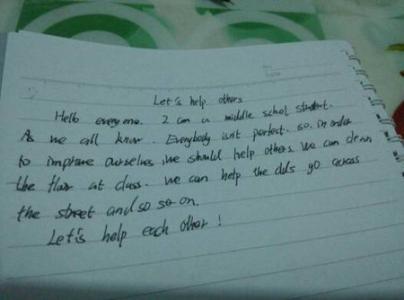 Let's help others
Hello everyone. I am a middle schol student.
As we all know. Everybody isn't perfect. so. in order
to improve ourselves, we should help others. We can clean
the floor at class. we can help the olds go across
the street and so so on.
Let's help each other!